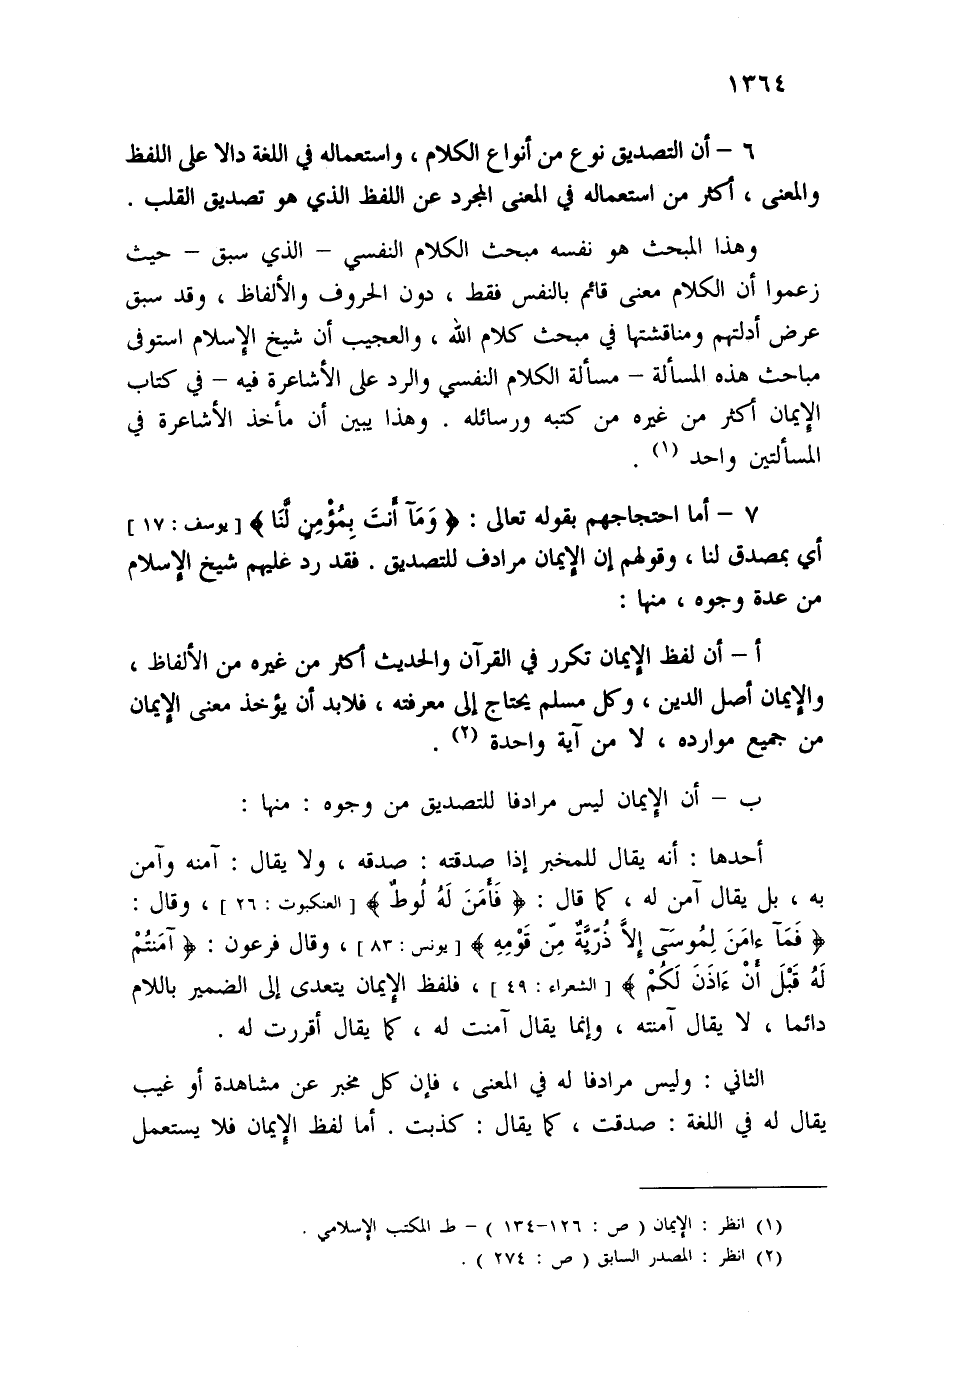 ١٣٦٤
٦ – أن التصديق نوع من أنواع الكلام ، واستعماله في اللغة دالا على اللفظ
والمعنى ، أكثر من استعماله في المعنى المجرد عن اللفظ الذي هو تصديق القلب .
وهذا المبحث هو نفسه مبحث الكلام النفسي – الذي سبق – حيث
زعموا أن الكلام معنى قائم بالنفس فقط ، دون الحروف والألفاظ ، وقد سبق
عرض أدلتهم ومناقشتها في مبحث كلام الله ، والعجيب أن شيخ الإسلام استوفى
مباحث هذه المسألة – مسألة الكلام النفسي والرد على الأشاعرة فيه – في كتاب
الإيمان أكثر من غيره من كتبه ورسائله . وهذا يبين أن مأخذ الأشاعرة في
المسألتين واحد (١) .
٧ – أما احتجاجهم بقوله تعالى : ﴿ وَمَآ أَنتَ بِمُؤْمِنٍ لَّنَا ﴾ [ يوسف : ١٧ ]
أي بمصدق لنا ، وقولهم إن الإيمان مرادف للتصديق . فقد رد عليهم شيخ الإسلام
من عدة وجوه ، منها :
أ – أن لفظ الإيمان تكرر في القرآن والحديث أكثر من غيره من الألفاظ ،
والإيمان أصل الدين ، وكل مسلم يحتاج إلى معرفته ، فلابد أن يؤخذ معنى الإيمان
من جميع موارده ، لا من آية واحدة (٢) .
ب – أن الإيمان ليس مرادفا للتصديق من وجوه : منها :
أحدها : أنه يقال للمخبر إذا صدقته : صدقه ، ولا يقال : آمنه وآمن
به ، بل يقال آمن له ، كما قال : ﴿ فَأَمَنَ لَهُ لُوطٌ ﴾ [ العنكبوت : ٢٦ ] ، وقال :
﴿ فَمَآ ءامَنَ لِمُوسَى إِلاَّ ذُرِّيَّةٌ مِّن قَوْمِهِ ﴾ [ يونس : ٨٣ ] ، وقال فرعون : ﴿ آمَنتُمْ
لَهُ قَبْلَ أَنْ ءَاذَنَ لَكُمْ ﴾ [ الشعراء : ٤٩ ] ، فلفظ الإيمان يتعدى إلى الضمير باللام
دائما ، لا يقال آمنته ، وإنما يقال آمنت له ، كما يقال أقررت له .
الثاني : وليس مرادفا له في المعنى ، فإن كل مخبر عن مشاهدة أو غيب
يقال له في اللغة : صدقت ، كما يقال : كذبت . أما لفظ الإيمان فلا يستعمل
(١) انظر : الإيمان ( ص : ١٢٦–١٣٤ ) – ط المكتب الإسلامي .
(٢) انظر : المصدر السابق ( ص : ٢٧٤ ) .